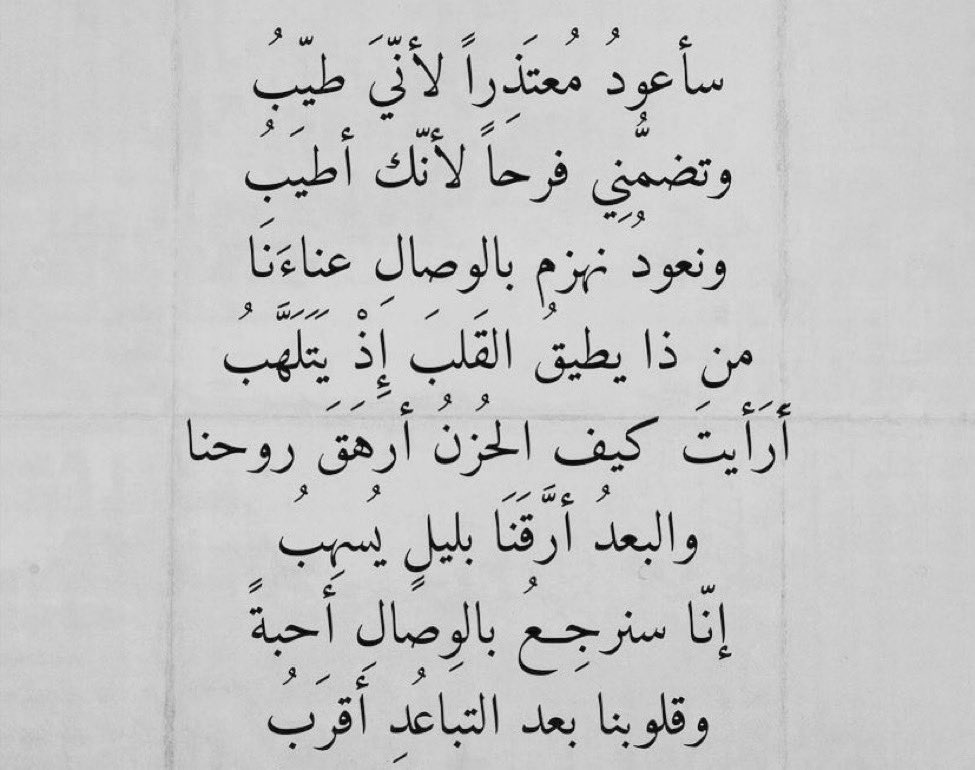 سأعودُ مُعتَذِراً لأنّيَ طيّبُ
وتضمُّنِي فرحاً لأنّك أطيَبُ
ونعودُ نهزِم بالوصالِ عناءَنَا
من ذا يطيقُ القَلبَ إِذْ يَتَلَهَّبُ
أَرَأيتَ كيف الحُزنُ أرهَقَ روحنا
والبعدُ أرَّقَنَا بليلٍ يُسهِبُ
إنّا سنرجِـعُ بالوِصالِ أَحبةً
وقلوبنا بعد التباعُدِ أَقرَبُ